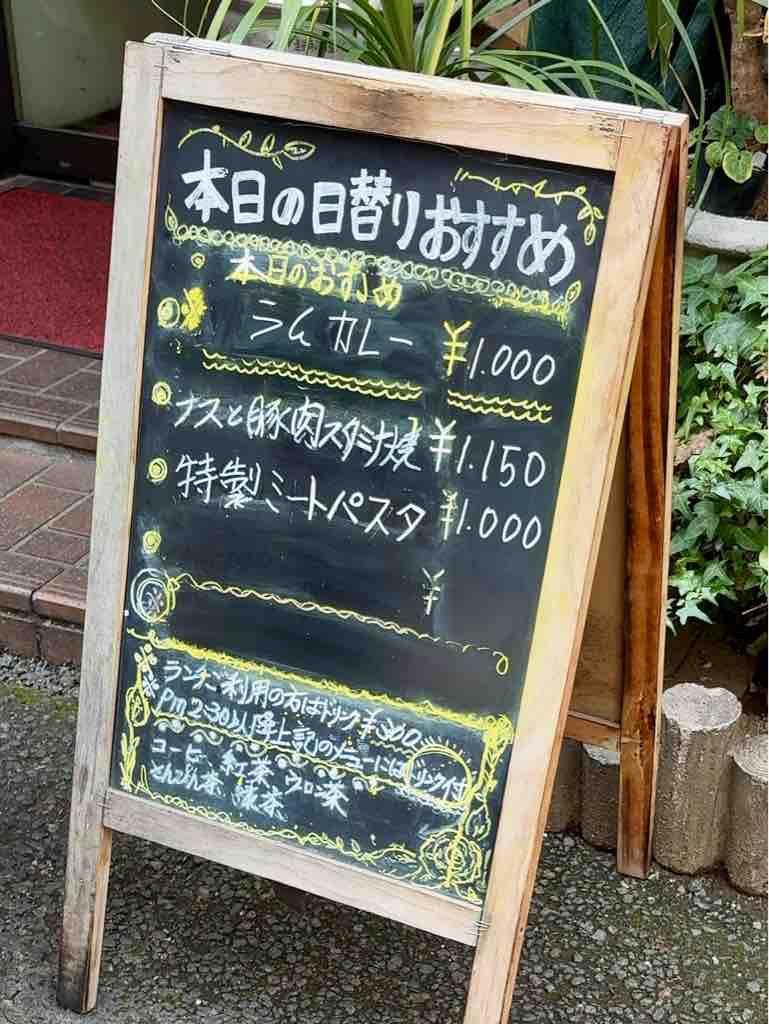 本日の日替りおすすめ
本日のおすすめ
ラムカレー ¥1.000
ナスと豚肉スタミナ焼 ¥1.150
特製ミートパスタ ¥1.000
¥
ランチご利用の方はドリンク¥300
Pm2:30以降上記のメニューにはドリンク付
コーヒー 紅茶 ウーロン茶
緑茶